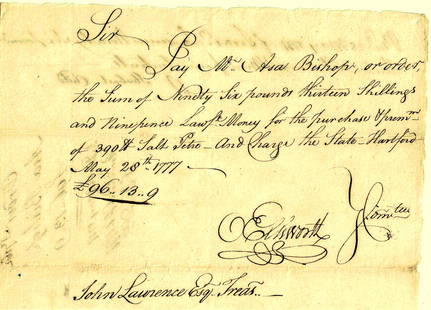 Sir
Pay Mr Asa Bishop, or order,
the Sum of Ninety Six pounds thirteen Shillings
and Ninepence Lawfl Money for the purchase & prem'm
of 390 lb Salt Petre – And Charge the State – Hartford
May 28th 1777 –
£96.. 13.. 9
O Ellsworth } Comtee
John Lawrence Esq. Treas.. –